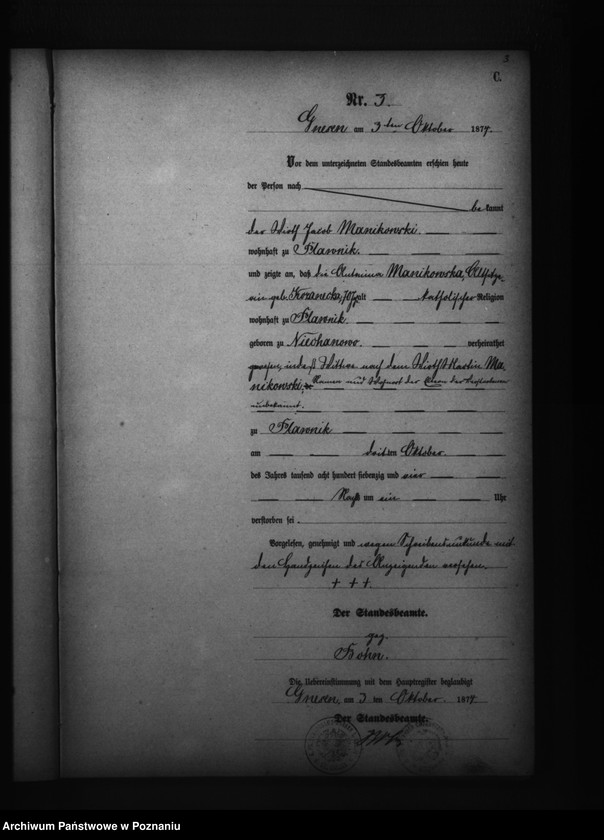 3
C.
Nr. 3.
Gnesen am 3ten Oktober 1874.
Vor dem unterzeichneten Standesbeamten erschien heute
der Person nach
bekannt
der Wirth Jacob Manikowski.
wohnhaft zu Flawnik.
und zeigte an, daß die Antonina Manikowska,
geb. alt katholischer Religion
wohnhaft zu Flawnik
geboren zu Niechanowo verheirathet
gewesen, Wittwe nach dem Wirth Martin Ma-
nikowski, Namen und Wohnort der Eltern der Verstorbenen
unbekannt.
zu Flawnik
am dritten Oktober
des Jahres tausend acht hundert siebenzig und vier
Nachts um ein Uhr
verstorben sei.
Vorgelesen, genehmigt und wegen Schreibensunkunde mit
den Handzeichen des Anzeigenden versehen.
+ + +.
Der Standesbeamte.
gez.
Die Uebereinstimmung mit dem Hauptregister beglaubigt
Gnesen, am 3 ten Oktober. 1874
Der Standesbeamte.
Archiwum Państwowe w Poznaniu